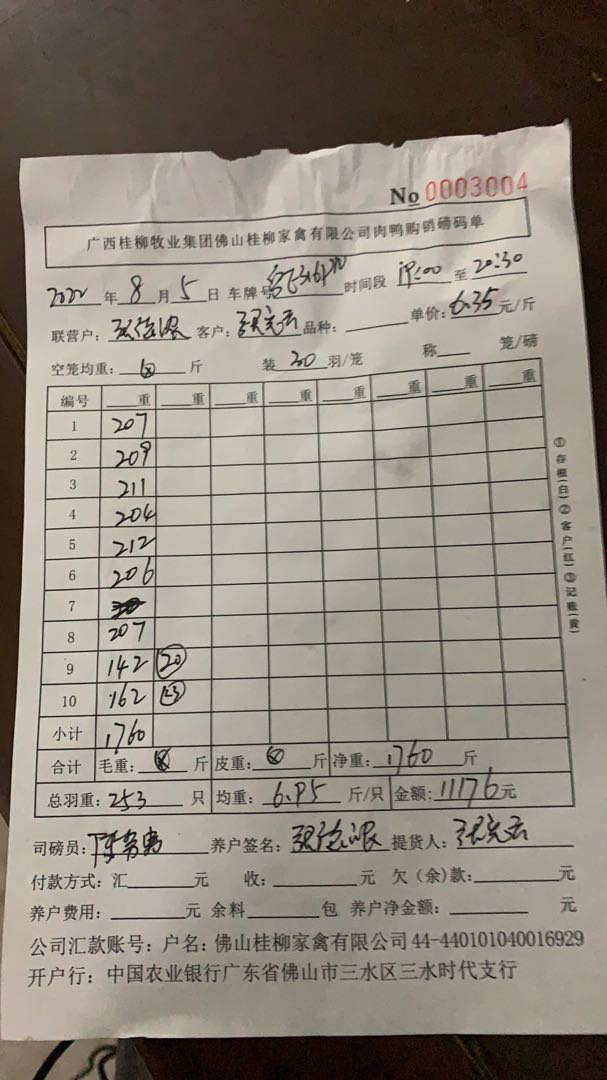 No 0003004
广西桂柳牧业集团佛山桂柳家禽有限公司肉鸭购销磅码单
2022年8月5日 车牌号 时间段 至20:30
联营户： 客户： 品种： 单价：6.35元/斤
空笼均重： 斤 装30羽/笼 称 笼/磅
编号 重 重 重 重 重 重 重 重
1 207
2 209
3 211
4 204
5 212
6 206
7
8 207
9 142 20
10 162 23
小计 1760
合计 毛重： 斤 皮重： 斤 净重：1760斤
总羽重：253只 均重：6.95斤/只 金额：11176元
司磅员： 养户签名： 提货人：
付款方式：汇 元 收： 元 欠（余）款： 元
养户费用： 元 余料 包 养户净金额： 元
公司汇款账号：户名：佛山桂柳家禽有限公司44-440101040016929
开户行：中国农业银行广东省佛山市三水区三水时代支行
①存根(白)②客户(红)③记账(黄)